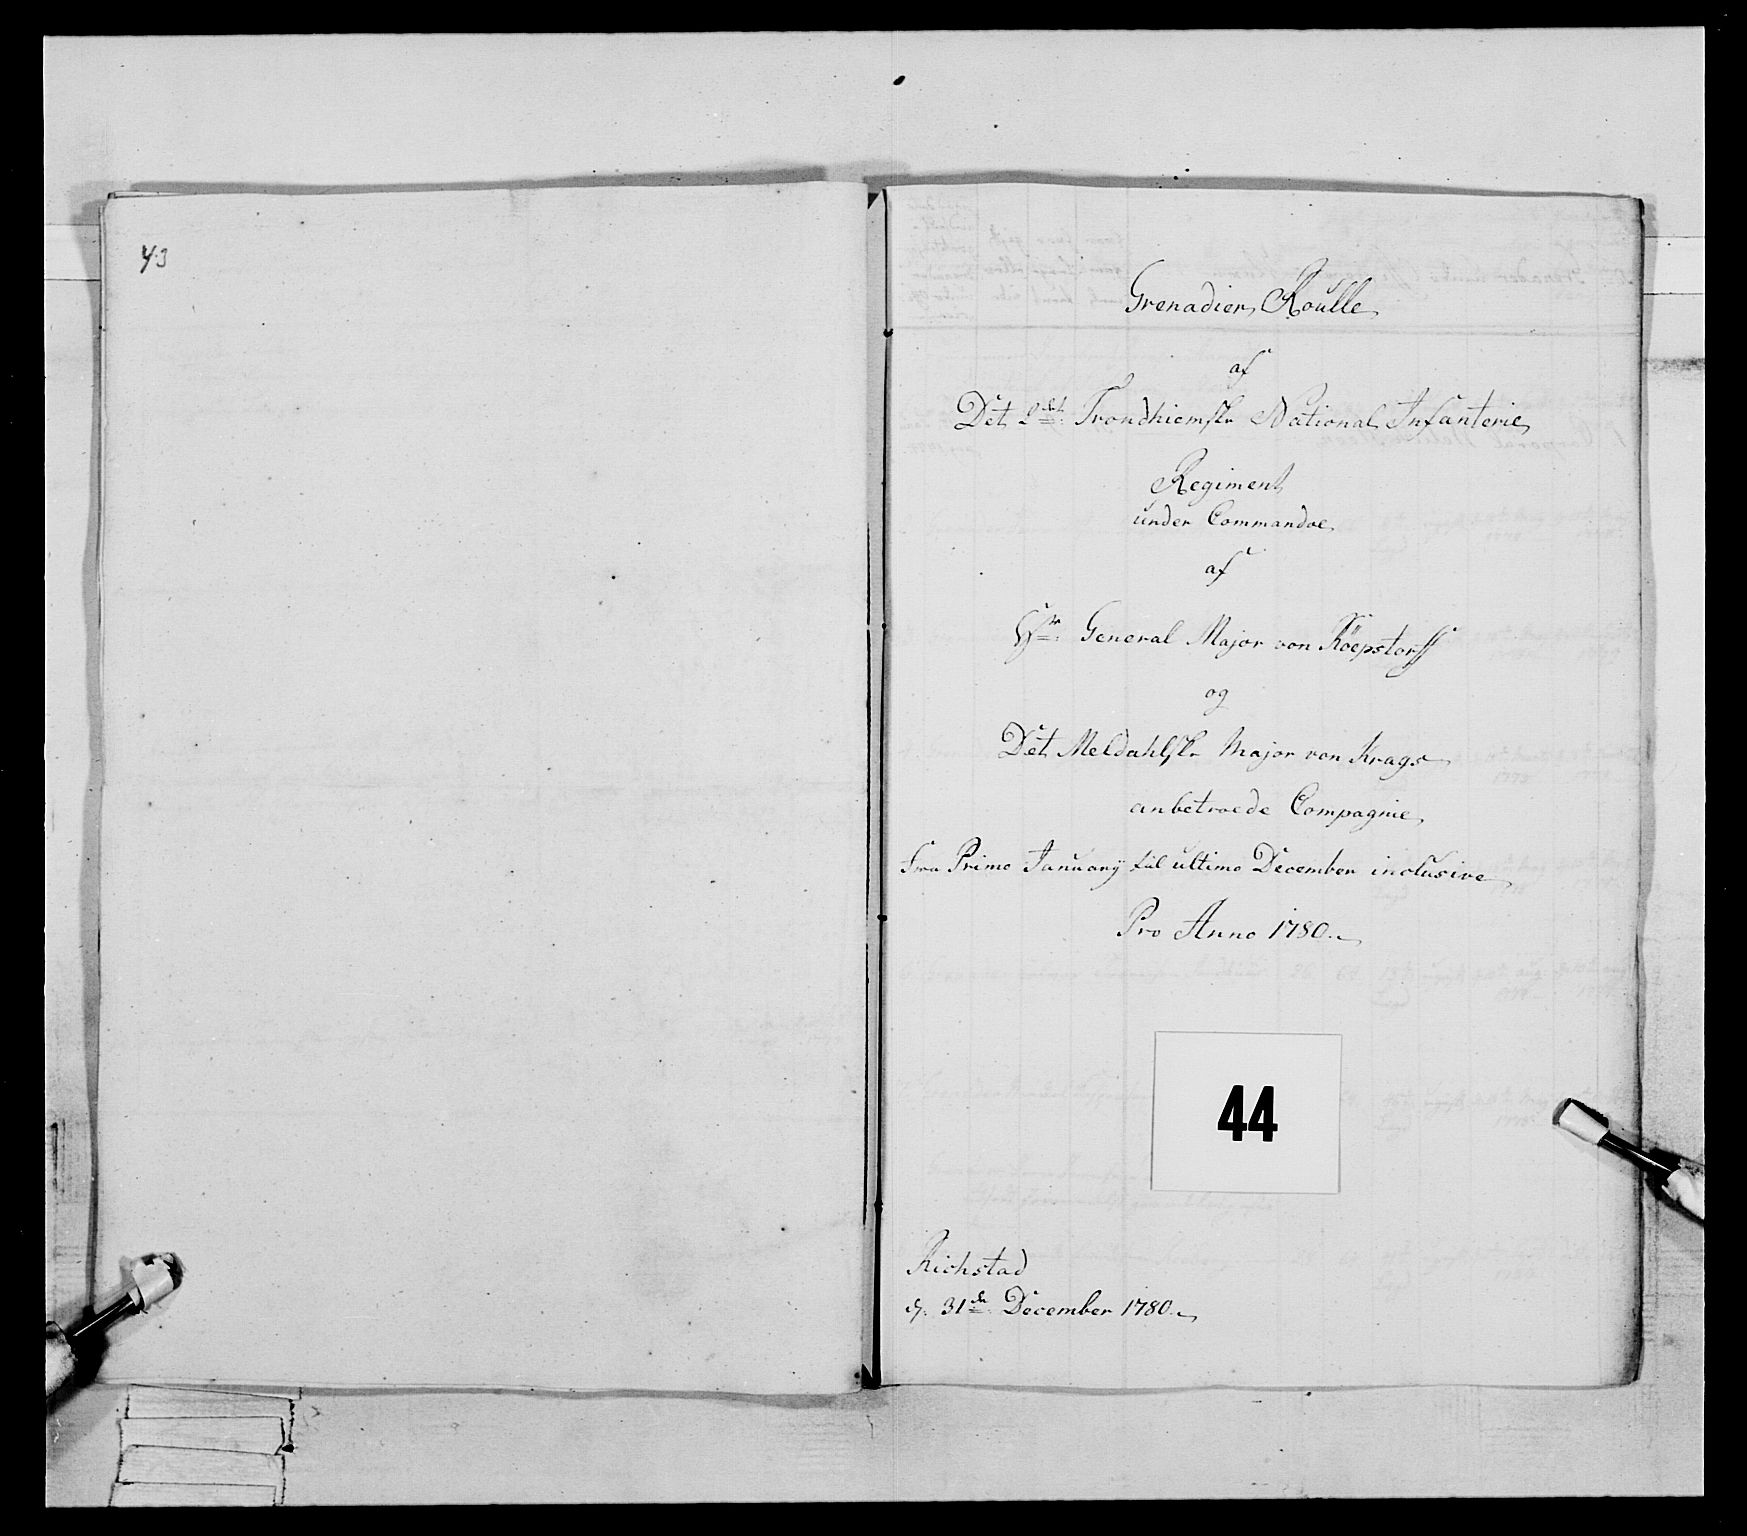 43
Grenadier Roulle
af
Det 2det Trondhiemske National Infanterie
Regiment
under Commandoe
af
Hr: General Major von Köepstorff
og
Det Meldahlske Major von Krags
anbetroede Compagnie
Fra Primo January til ultimo December inclusive
Pro Anno 1780.
44
Richstad
d: 31de December 1780.